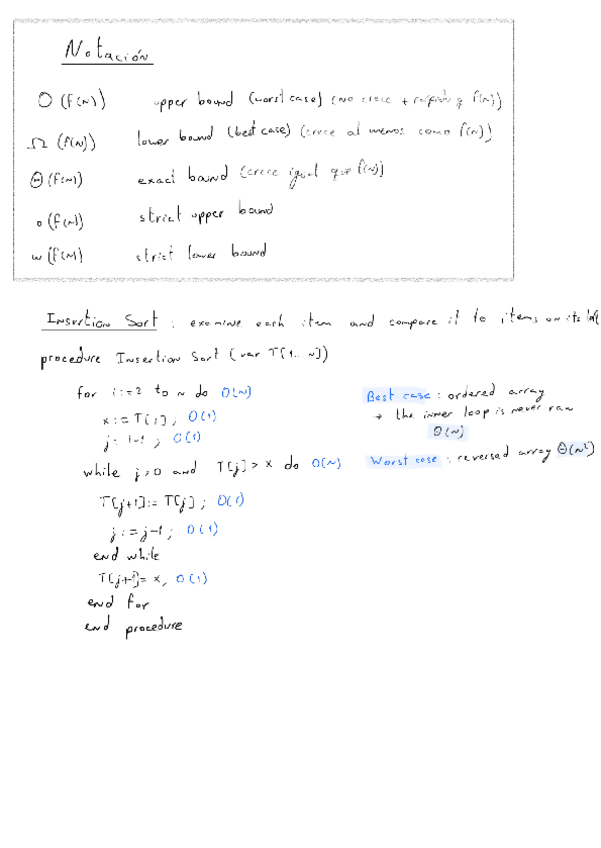 Notación
O (f(n)) upper bound (worst case) (no crece + rápido q f(n))
Ω (f(n)) lower bound (best case) (crece al menos como f(n))
Θ (f(n)) exact bound (crece igual que f(n))
o (f(n)) strict upper bound
ω (f(n)) strict lower bound
Insertion Sort : examine each item and compare it to items on its left
procedure Insertion Sort (var T[1..n])
for i:=2 to n do O(n)
x:= T[i]; O(1)
j:= i-1; O(1)
while j>0 and T[j]> x do O(n)
T[j+1]:= T[j]; O(1)
j:= j-1; O(1)
end while
T[j+1]= x, O(1)
end for
end procedure
Best case : ordered array
→ the inner loop is never ran
Θ(n)
Worst case : reversed array Θ(n²)